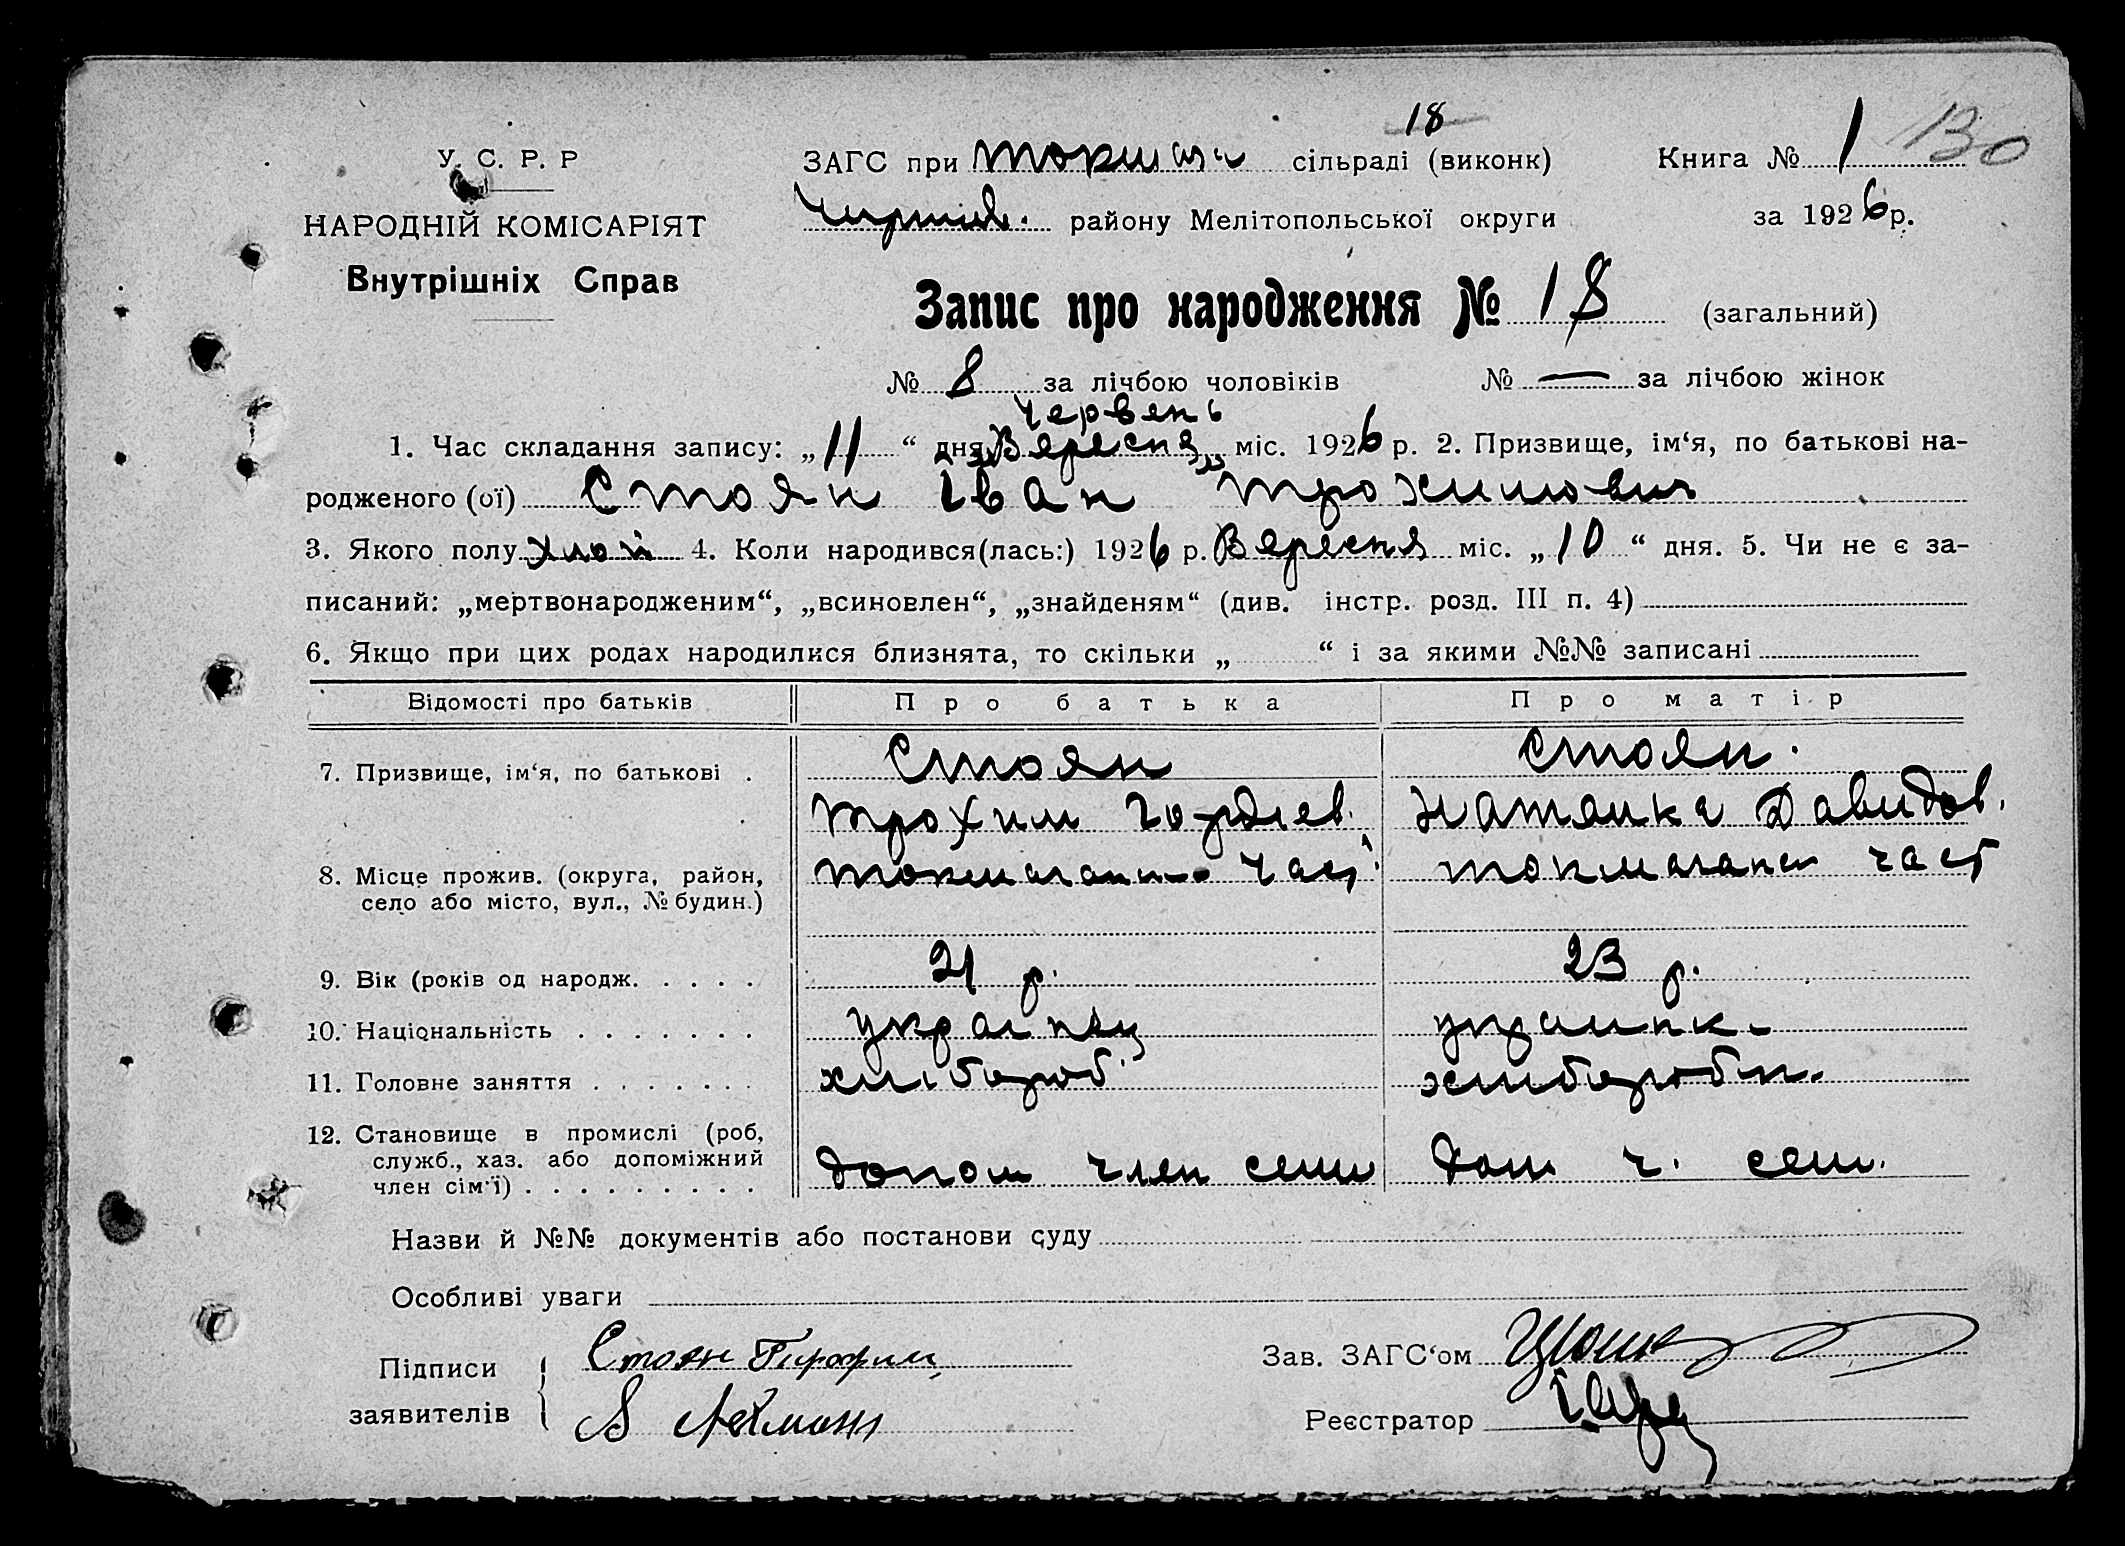 18
У. С. Р. Р ЗАГС при сільраді (виконк) Книга № 1 130
НАРОДНІЙ КОМІСАРІЯТ району Мелітопольської округи за 1926 р.
Внутрішніх Справ
Запис про народження № 18 (загальний)
№ 8 за лічбою чоловіків № — за лічбою жінок
Червень
1. Час складання запису: „ 11 “ дня Вересня міс. 1926 р. 2. Призвище, ім‘я, по батькові на-
родженого (ої) Стоян Іван Трохимович
3. Якого полу хлоп 4. Коли народився(лась:) 1926 р. Вересня міс. „ 10 “ дня. 5. Чи не є за-
писаний: „мертвонародженим“, „всиновлен“, „знайденям“ (див. інстр. розд. III п. 4)
6. Якщо при цих родах народилися близнята, то скільки „ “ і за якими №№ записані
Відомості про батьків Про батька Про матір
7. Призвище, ім‘я, по батькові . Стоян Стоян.
Трохим Гордіев. Давидов.
8. Місце прожив. (округа, район, част част
село або місто, вул., № будин.)
9. Вік (років од народж. . . . . 21 р. 23 р.
10. Національність . . . . . . . українец українк.
11. Головне заняття . . . . . . . хлібороб хлибороб
12. Становище в промислі (роб,
служб., хаз. або допоміжний допом член семи дом ч. сем.
член сім‘ї) . . . . . . . . .
Назви й №№ документів або постанови суду
Особливі уваги
Підписи Стоян Зав. ЗАГС‘ом
заявителів Реєстратор